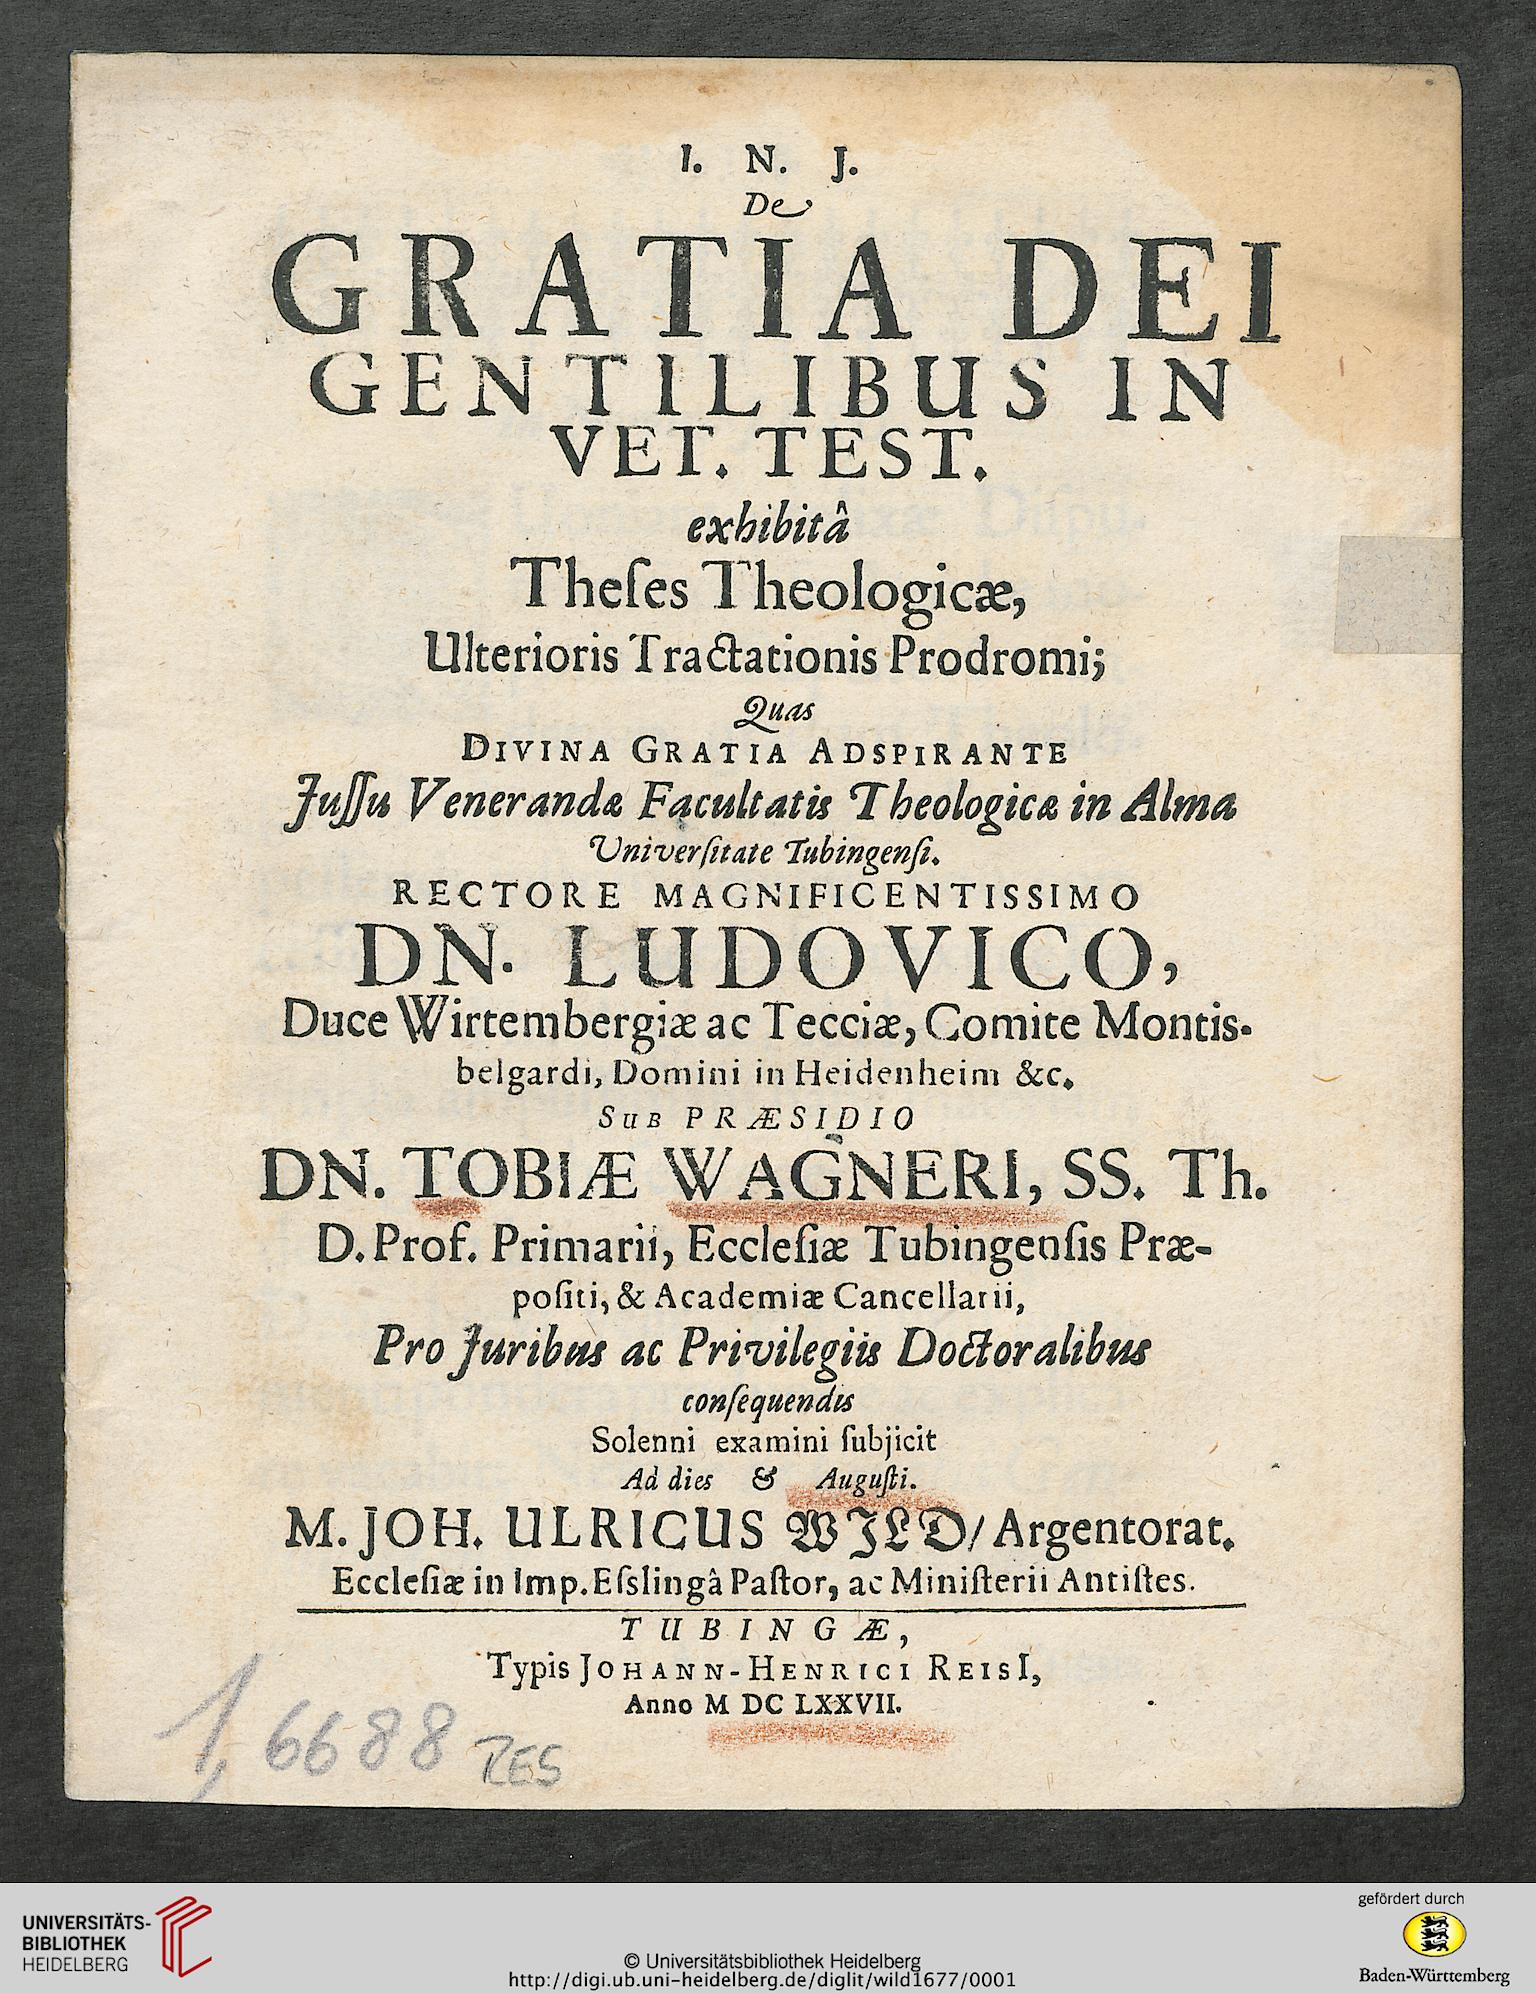 I. N. J.
De
GRATIA DEI
GENTILIBUS IN
VET. TEST.
exhibitâ
Theſes Theologicæ,
Ulterioris Tractationis Prodromi;
Quas
DIVINA GRATIA ADSPIRANTE
Juſſu Venerandæ Facultatis Theologicæ in Alma
Univerſitate Tubingenſi.
RECTORE MAGNIFICENTISSIMO
DN. LUDOVICO,
Duce Wirtembergiæ ac Tecciæ, Comite Montis-
belgardi, Domini in Heidenheim &c.
SUB PRÆSIDIO
DN. TOBIÆ WAGNERI, SS. Th.
D. Prof. Primarii, Eccleſiæ Tubingenſis Præ-
poſiti, & Academiæ Cancellarii,
Pro Juribus ac Privilegiis Doctoralibus
conſequendis
Solenni examini ſubjicit
Ad dies & Auguſti.
M. JOH. ULRICUS WILD/ Argentorat.
Eccleſiæ in Imp. Eſslingâ Paſtor, ac Miniſterii Antiſtes.
TUBINGÆ,
Typis JOHANN-HENRICI REISI,
Anno M DC LXXVII.
1, 6688 RES
UNIVERSITÄTS-
BIBLIOTHEK
HEIDELBERG
© Universitätsbibliothek Heidelberg
http://digi.ub.uni-heidelberg.de/diglit/wild1677/0001
gefördert durch
Baden-Württemberg